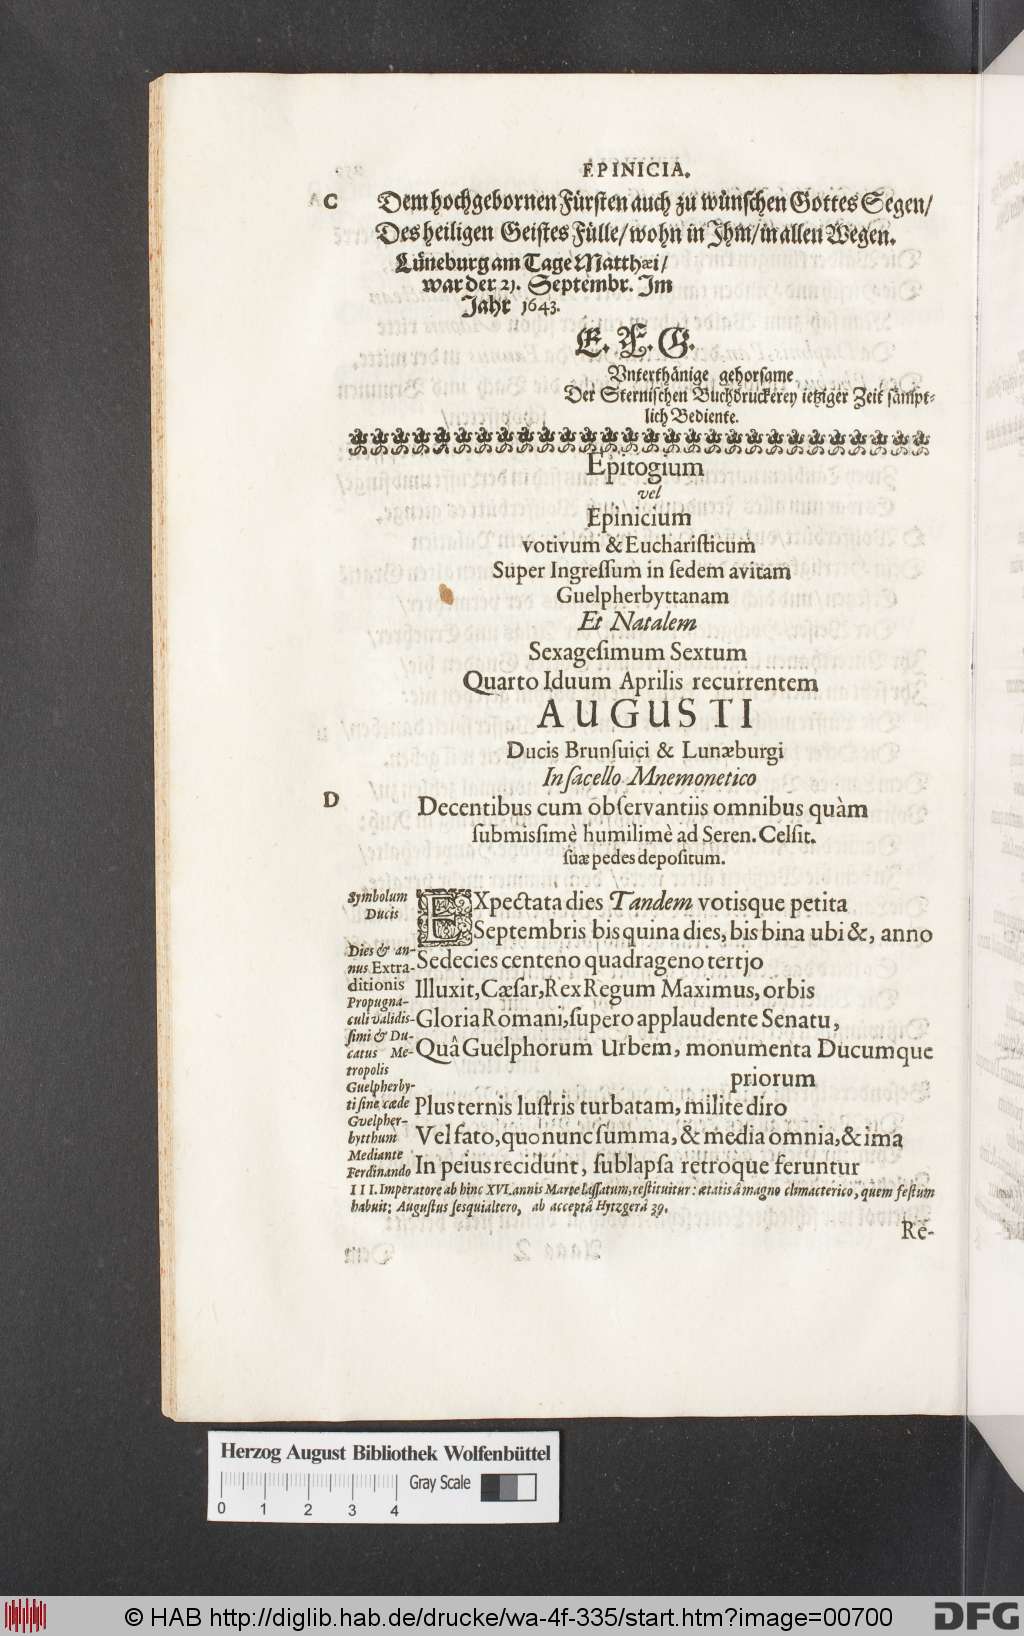 EPINICIA.
C
Dem hochgebornen Fürsten auch zu wünschen Gottes Segen/
Des heiligen Geistes Fülle/ wohn in Ihm/ in allen Wegen.
Lüneburg am Tage Matthæi/
war der 21. Septembr. Im
Jahr 1643.
E. F. G.
Vnterthänige gehorsame
Der Sternischen Buchdruckerey ietziger Zeit sämpt-
lich Bediente.
Epitogium
vel
Epinicium
votivum & Euchariſticum
Super Ingreſſum in ſedem avitam
Guelpherbyttanam
Et Natalem
Sexageſimum Sextum
Quarto Iduum Aprilis recurrentem
AUGUSTI
Ducis Brunſuici & Lunæburgi
In ſacello Mnemonetico
D
Decentibus cum obſervantiis omnibus quàm
ſubmiſſimè humilimè ad Seren. Celſit.
ſuæ pedes depoſitum.
Symbolum
Ducis
EXpectata dies Tandem votisque petita
Septembris bis quina dies, bis bina ubi &, anno
Dies & an-
nus Extra-
ditionis
Propugna-
culi validiſ-
ſimi & Du-
catus Me-
tropolis
Guelpherby-
ti ſine cæde
Guelpher-
bytthum
Mediante
Ferdinando
Sedecies centeno quadrageno tertjo
Illuxit, Cæſar, Rex Regum Maximus, orbis
Gloria Romani, ſupero applaudente Senatu,
Quâ Guelphorum Urbem, monumenta Ducumque
priorum
Plus ternis luſtris turbatam, milite diro
Vel fato, quo nunc ſumma, & media omnia, & ima
In peius recidunt, ſublapſa retroque feruntur
III. Imperatore ab hinc XVI. annis Marte laſſatum, reſtituitur: ætatis â magno climacterico, quem feſtum
habuit: Auguſtus ſesquialtero, ab acceptâ Hytzgerâ 39.
Re-
Herzog August Bibliothek Wolfenbüttel
Gray Scale
0 1 2 3 4
© HAB http://diglib.hab.de/drucke/wa-4f-335/start.htm?image=00700
DFG